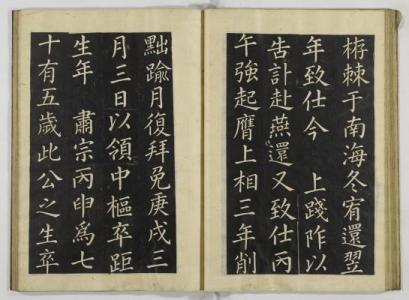 栫棘于南海冬宥還翌
年致仕今　上踐阼以
告訃赴燕還又致仕丙
午強起膺上相三年削
黜踰月復拜免庚戌三
月三日以領中樞卒距
生年　肅宗丙申爲七
十有五歲此公之生卒